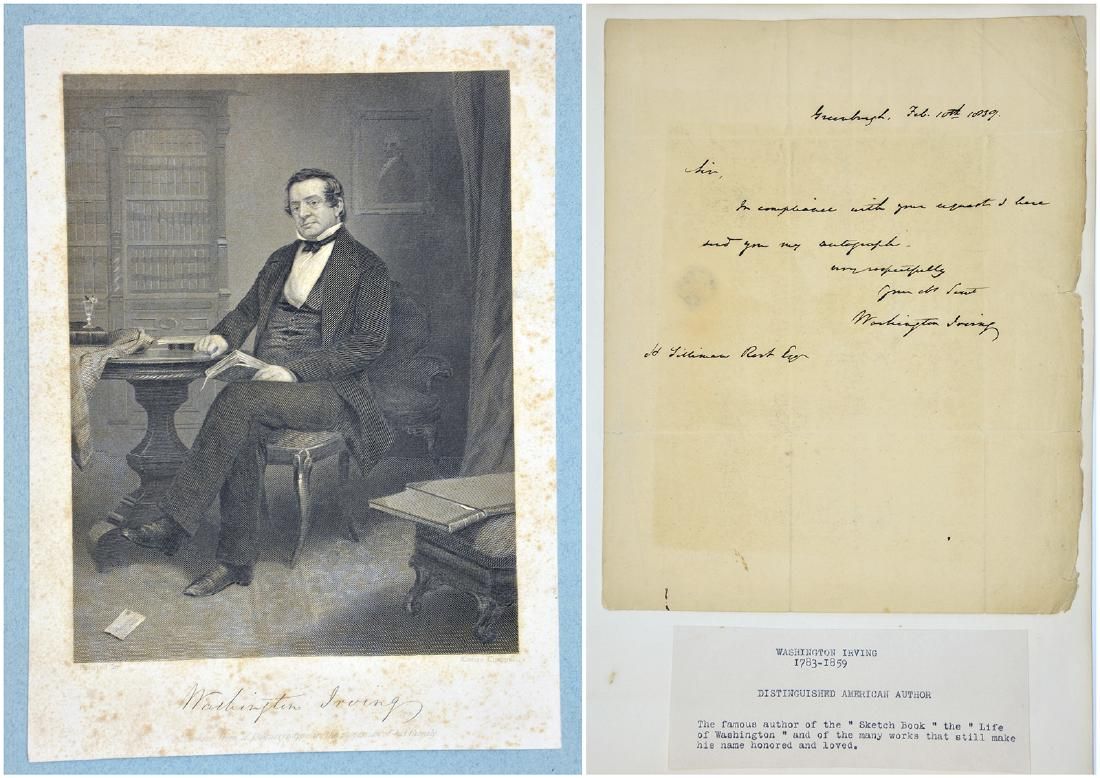 Washington Irving
Greenburgh, Feb. 10th 1839.
Sir,
In compliance with your request I here
send you my autograph.
very respectfully
Your obt Servt
Washington Irving
H Silliman Esqr
WASHINGTON IRVING
1783-1859
DISTINGUISHED AMERICAN AUTHOR
The famous author of the " Sketch Book " the " Life
of Washington " and of the many works that still make
his name honored and loved.